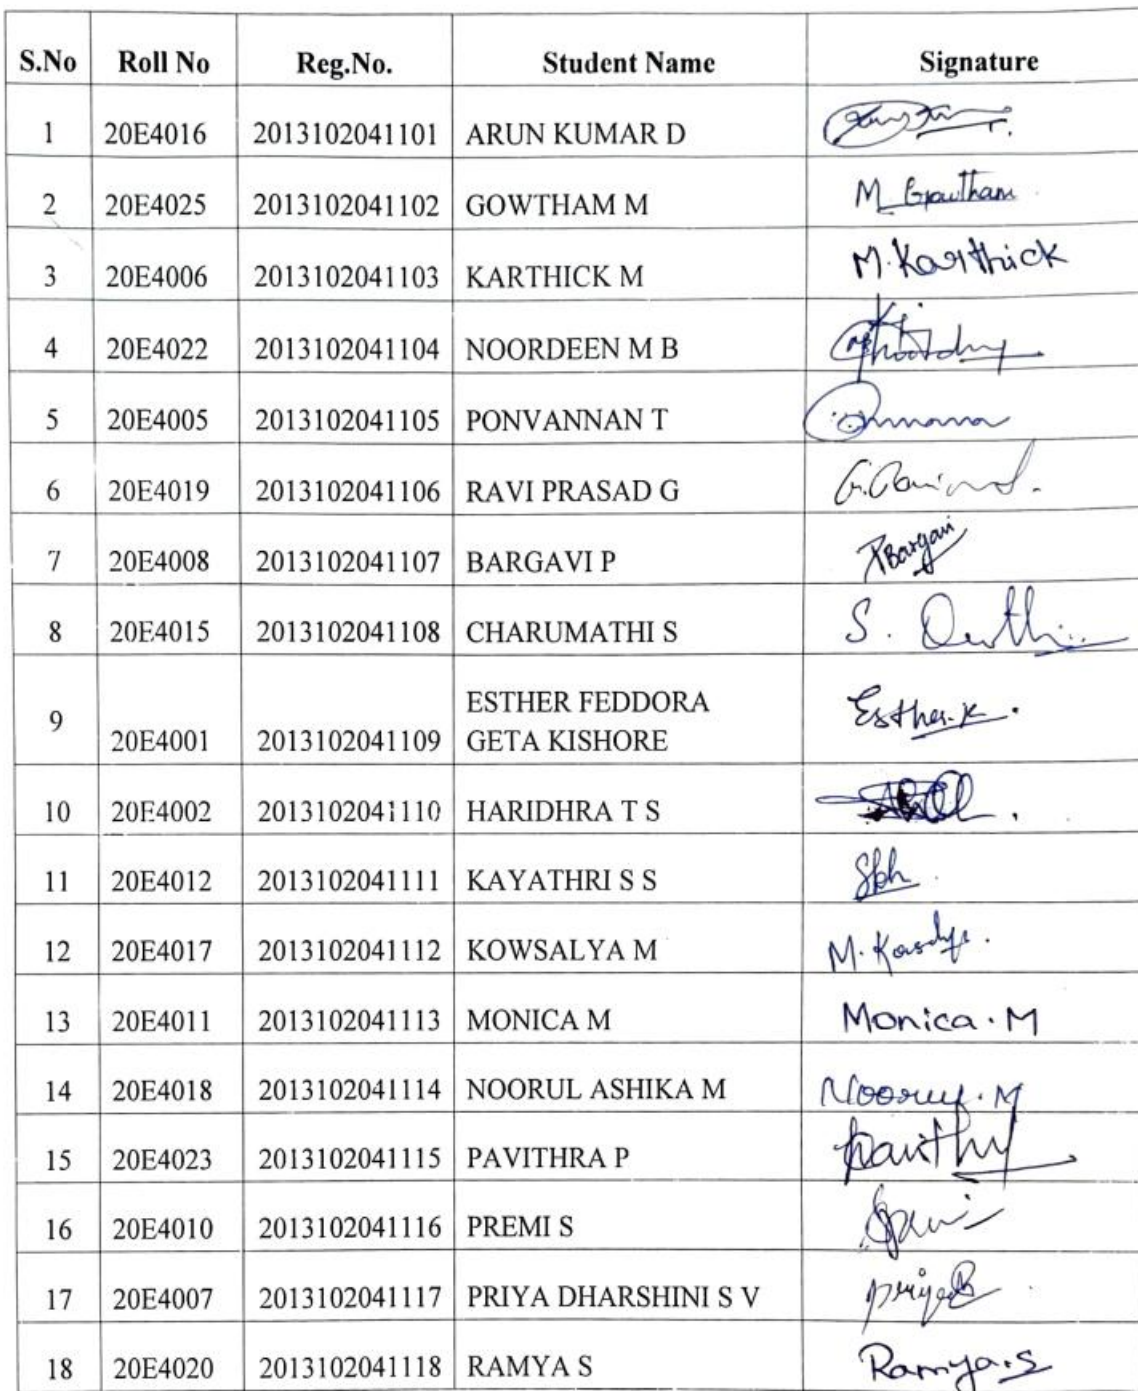 S.No Roll No Reg.No. Student Name Signature
1 20E4016 2013102041101 ARUN KUMAR D
2 20E4025 2013102041102 GOWTHAM M M Gowtham
3 20E4006 2013102041103 KARTHICK M M. Karthick
4 20E4022 2013102041104 NOORDEEN M B
5 20E4005 2013102041105 PONVANNAN T
6 20E4019 2013102041106 RAVI PRASAD G
7 20E4008 2013102041107 BARGAVI P P Bargavi
8 20E4015 2013102041108 CHARUMATHI S S.
ESTHER FEDDORA
9 20E4001 2013102041109 GETA KISHORE Esther.K.
10 20E4002 2013102041110 HARIDHRA T S
11 20E4012 2013102041111 KAYATHRI S S
12 20E4017 2013102041112 KOWSALYA M M.
13 20E4011 2013102041113 MONICA M Monica.M
14 20E4018 2013102041114 NOORUL ASHIKA M Noorul.M
15 20E4023 2013102041115 PAVITHRA P
16 20E4010 2013102041116 PREMI S
17 20E4007 2013102041117 PRIYA DHARSHINI S V
18 20E4020 2013102041118 RAMYA S Ramya.S